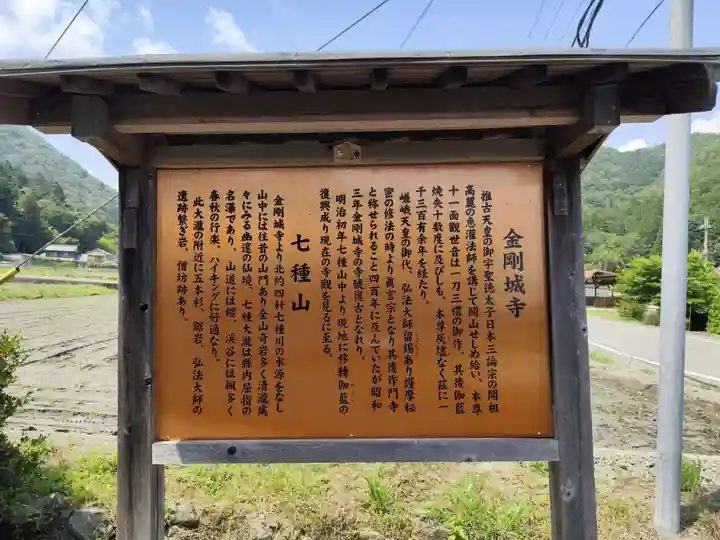 金剛城寺
推古天皇の御宇聖徳太子日本三論宗の開祖
高麗の恵灌法師を講じて開山せしめ給い、本尊
十一面観世音は一刀三禮の御作、其後伽藍
焼失十数度に及びしも、本尊灰燼なく茲に一
千三百有余年を経たり。
嵯峨天皇の御代、弘法大師留錫あり護摩秘
密の修法の時より眞言宗となり其後作門寺
と称せられること四百年に及んでいたが昭和
三年金剛城寺の寺號復古となれり。
明治初年七種山中より現地に移轉伽藍の
復興成り現在の寺観を見るに至る。
七種山
金剛城寺より北約四粁七種川の水源をなし
山中には往昔の山門あり全山奇岩多く清瀧處
々にみる幽邃の仙境、七種大瀧は縣内屈指の
名瀑であり、山道には櫻、渓谷には楓多く
春秋の行楽、ハイキングに好適なり。
此大瀧の附近に五本杉、鋸岩、弘法大師の
遺跡繋ぎ岩、僧坊跡あり。